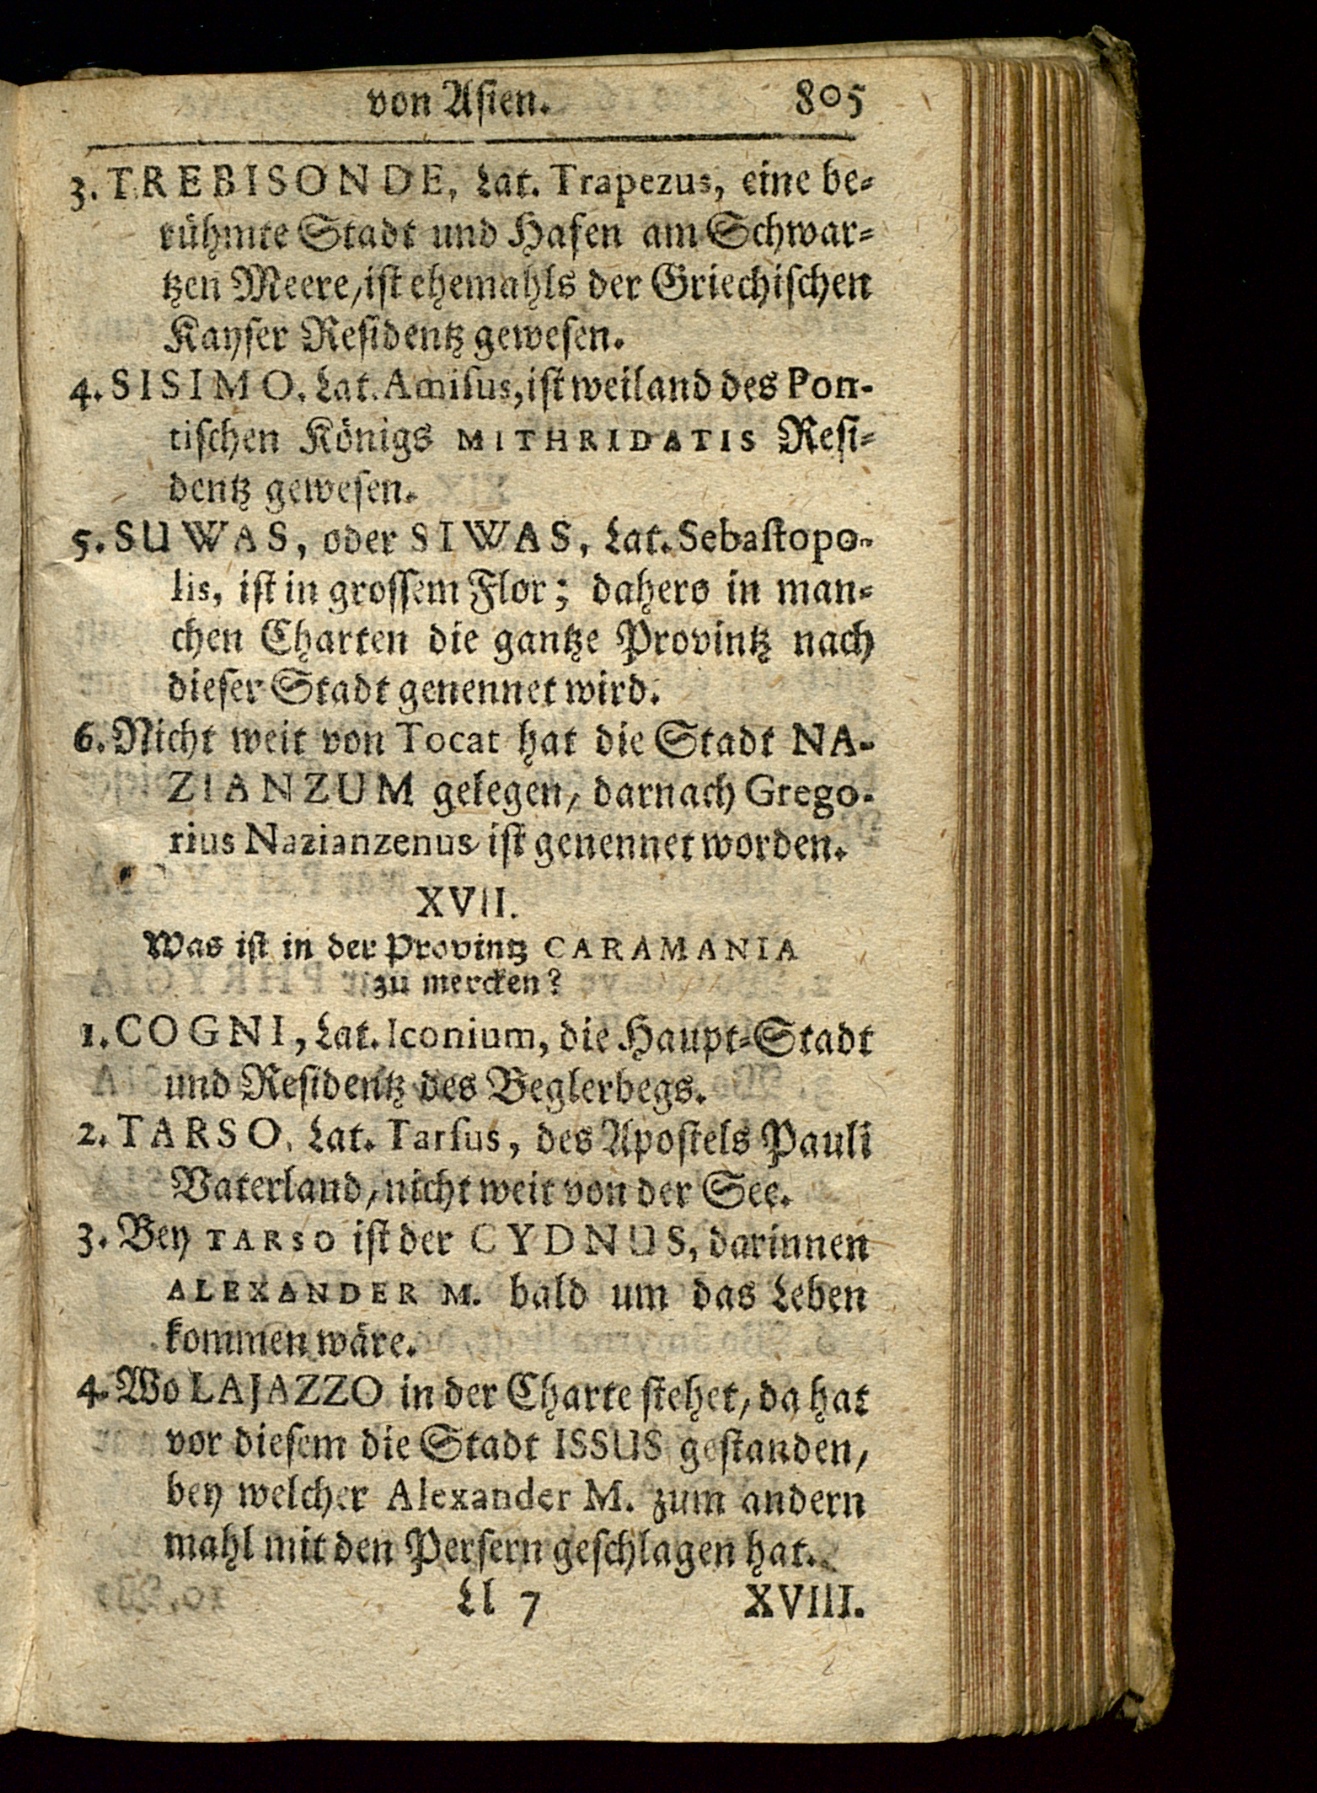 von Asien. 805
3. TREBISONDE, Lat. Trapezus, eine be-
rühmte Stadt und Hafen am Schwar-
tzen Meere/ ist ehemahls der Griechischen
Kayser Residentz gewesen.
4. SISIMO, Lat. Amisus, ist weiland des Pon-
tischen Königs MITHRIDATIS Resi-
dentz gewesen.
5. SUWAS, oder SIWAS, Lat. Sebastopo-
lis, ist in grossem Flor; dahero in man-
chen Charten die gantze Provintz nach
dieser Stadt genennet wird.
6. Nicht weit von Tocat hat die Stadt NA-
ZIANZUM gelegen/ darnach Grego-
rius Nazianzenus ist genennet worden.
XVII.
Was ist in der Provintz CARAMANIA
zu mercken?
1. COGNI, Lat. Iconium, die Haupt-Stadt
und Residentz des Beglerbegs.
2. TARSO, Lat. Tarsus, des Apostels Pauli
Vaterland/ nicht weit von der See.
3. Bey TARSO ist der CYDNUS, darinnen
ALEXANDER M. bald um das Leben
kommen wäre.
4. Wo LAJAZZO in der Charte stehet/ da hat
vor diesem die Stadt ISSUS gestanden/
bey welcher Alexander M. zum andern
mahl mit den Persern geschlagen hat.
Ll 7 XVIII.